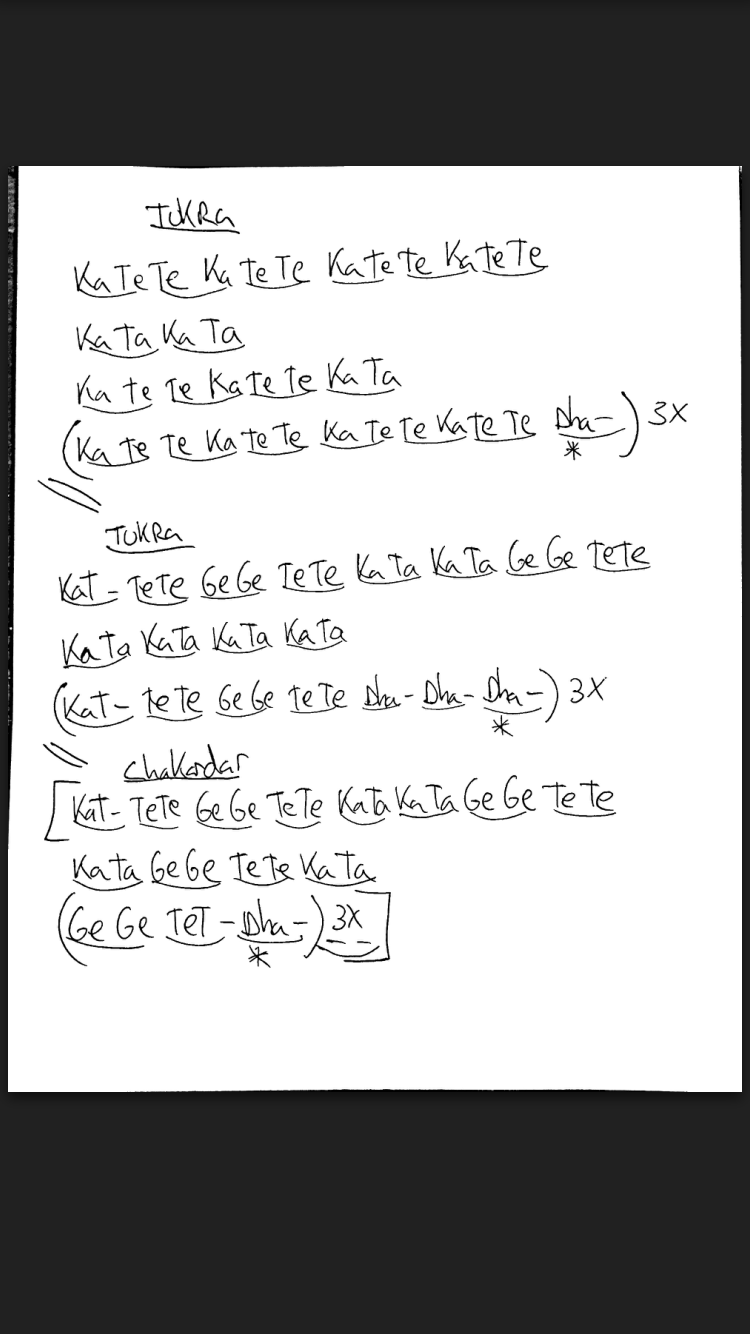 TUKRa
KaTeTe KaTeTe KaTeTe KaTeTe
KaTa KaTa
KaTeTe KaTeTe KaTa
(KaTeTe KaTeTe KaTeTe KaTeTe Dha-) 3X
*
TUKRa
Kat- TeTe GeGe TeTe KaTa KaTa GeGe TeTe
KaTa KaTa KaTa KaTa
(Kat- TeTe GeGe TeTe Dha- Dha- Dha-) 3X
*
Chakardar
[Kat- TeTe GeGe TeTe KaTa KaTa GeGe TeTe
KaTa GeGe TeTe KaTa
(GeGe TeT- Dha-) 3X]
*